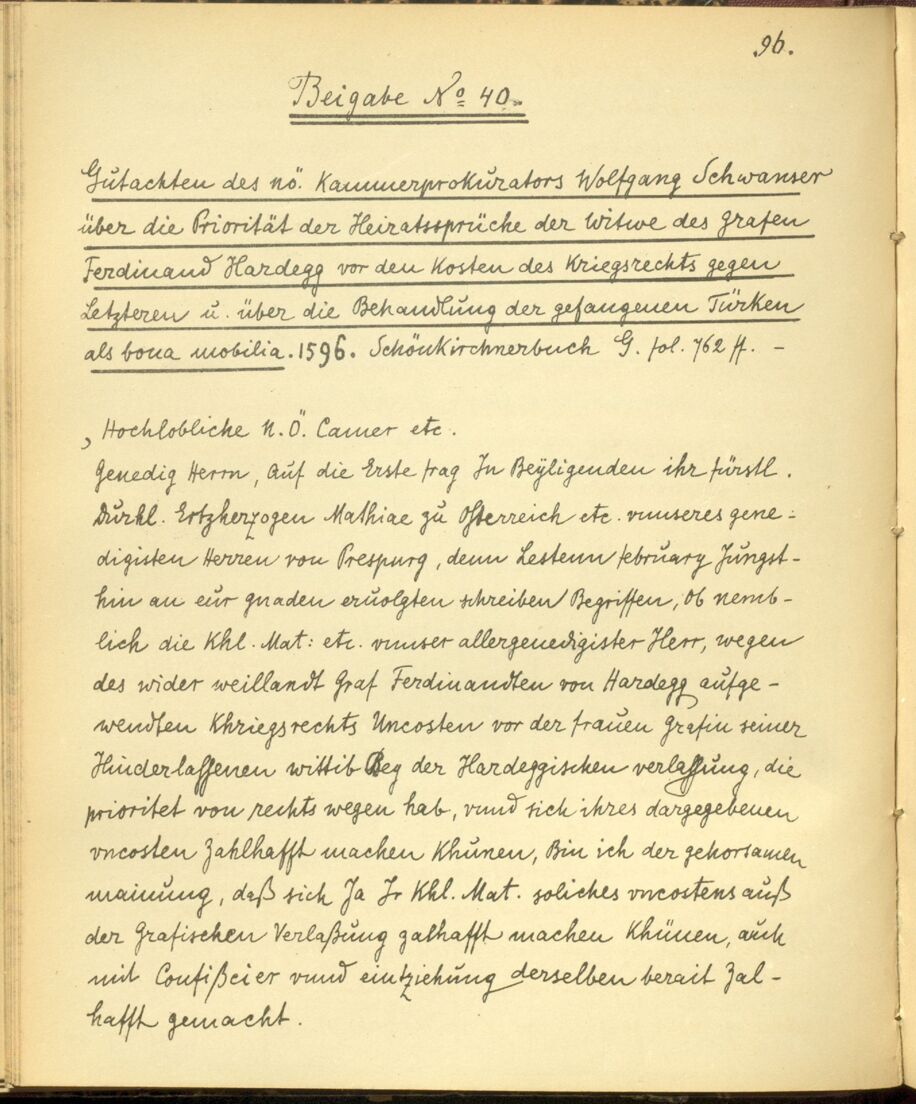 96.
Beigabe No 40.
Gutachten des nö. Kammerprokurators Wolfgang Schwanser
über die Priorität der Heiratssprüche der Witwe des Grafen
Ferdinand Hardegg vor den Kosten des Kriegsrechts gegen
Letzteren u. über die Behandlung der gefangenen Türken
als bona mobilia. 1596. Schönkirchnerbuch G. fol. 762 ff. -
, Hochlobliche N. Ö. Camer etc.
Genedig Herrn, Auf die Erste frag In Beÿligenden ihr fürstl.
Durkl. Ertzherzogen Mathiae zu Österreich etc. vnnseres gene-
digisten Herren von Prespurg, denn Lestenn february Jungst-
hin an eur gnaden eruolgten schreiben Begriffen, ob nemb-
lich die Khl. Mat: etc. vnnser allergenedigister Herr, wegen
des wider weillandt Graf Ferdinandten von Hardegg aufge-
wendten Khriegsrechts Uncosten vor der frauen Grafin seiner
Hinderlassenen wittib Bey der Hardeggischen verlassung, die
prioritet von rechts wegen hab, vnnd sich ihres dargegebenen
vncosten Zahlhafft machen Khünen, Bin ich der gehorsamen
mainung, daß sich Ja Ir Khl. Mat. soliches vncostens auß
der Grafischen Verlaßung zalhafft machen Khünen, auch
mit Confißcier vnnd eintziehung derselben berait Zal-
hafft gemacht.